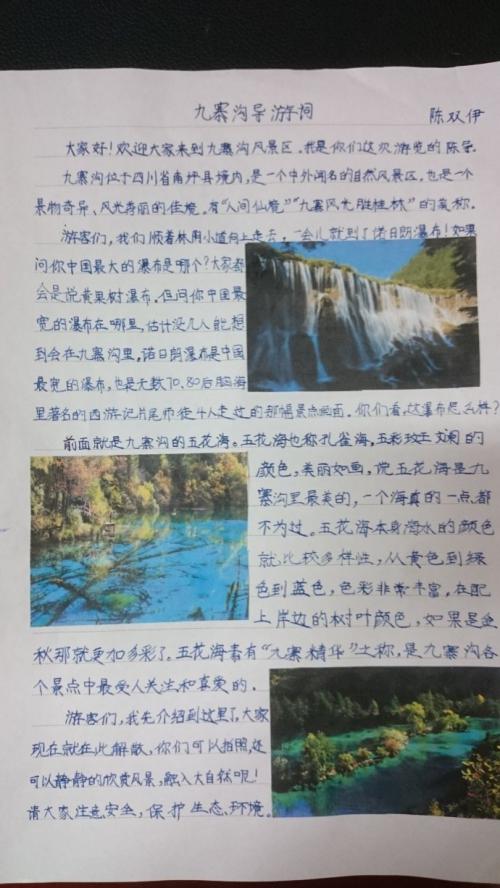 九寨沟导游词
陈双伊
大家好！欢迎大家来到九寨沟风景区。我是你们这次游览的陈导。
九寨沟位于四川省南坪县境内，是一个中外闻名的自然风景区。也是一个
景物奇异、风光秀丽的佳境。有“人间仙境”“九寨风光胜桂林”的美称。
游客们，我们顺着林用小道向上走去，一会儿就到了诺日朗瀑布！如果
问你中国最大的瀑布是哪个？大家都
会是说黄果树瀑布。但问你中国最
宽的瀑布在哪里，估计没几人能想
到会在九寨沟里，诺日朗瀑布是中国
最宽的瀑布，也是无数70、80后脑海
里著名的西游记片尾师徒4人走过的那幅景点画面。你们看，这瀑布怎么样？
前面就是九寨沟的五花海。五花海也称孔雀海，五彩斑斓的
颜色，美丽如画，说五花海是九
寨沟里最美的，一个海真的一点都
不为过。五花海本身海水的颜色
就比较多样性，从黄色到绿
色到蓝色，色彩非常丰富，在配
上岸边的树叶颜色，如果是金
秋那就更加多彩了。五花海素有“九寨精华”之称，是九寨沟各
个景点中最受人关注和喜爱的。
游客们，我先介绍到这里了，大家
现在就在此解散，你们可以拍照，还
可以静静的欣赏风景，融入大自然呢！
请大家注意安全，保护生态环境。